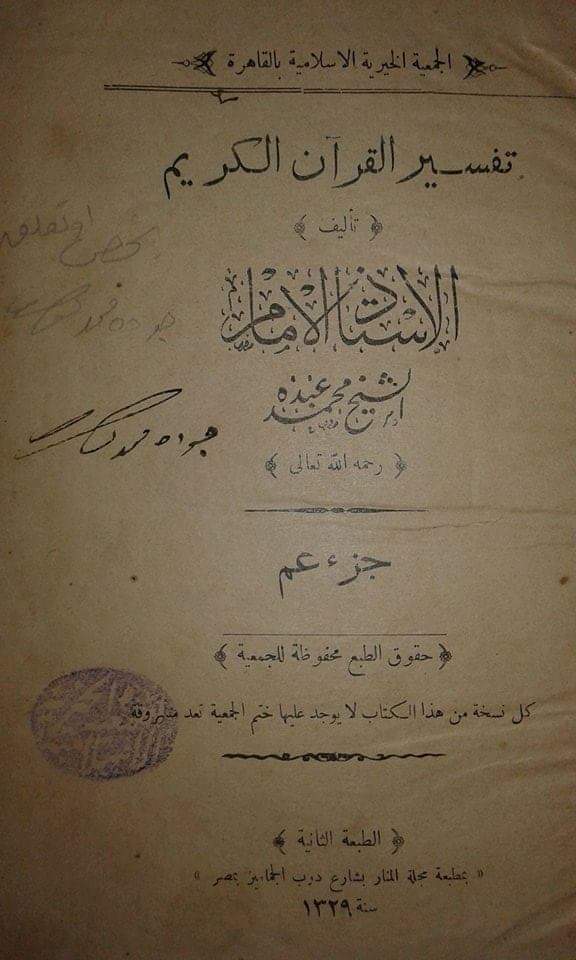 الجمعية الخيرية الاسلامية بالقاهرة
تفسير القرآن الكريم
﴿ تأليف ﴾
الاستاذ الامام
الشيخ محمد عبده
﴿ رحمه الله تعالى ﴾
جزء عم
﴿ حقوق الطبع محفوظة للجمعية ﴾
كل نسخة من هذا الكتاب لا يوجد عليها ختم الجمعية تعد مسروقة
﴿ الطبعة الثانية ﴾
« بمطبعة مجلة المنار بشارع درب الجماميز بمصر »
سنة ١٣٢٩
يخص
جوده محمد
جوده محمد